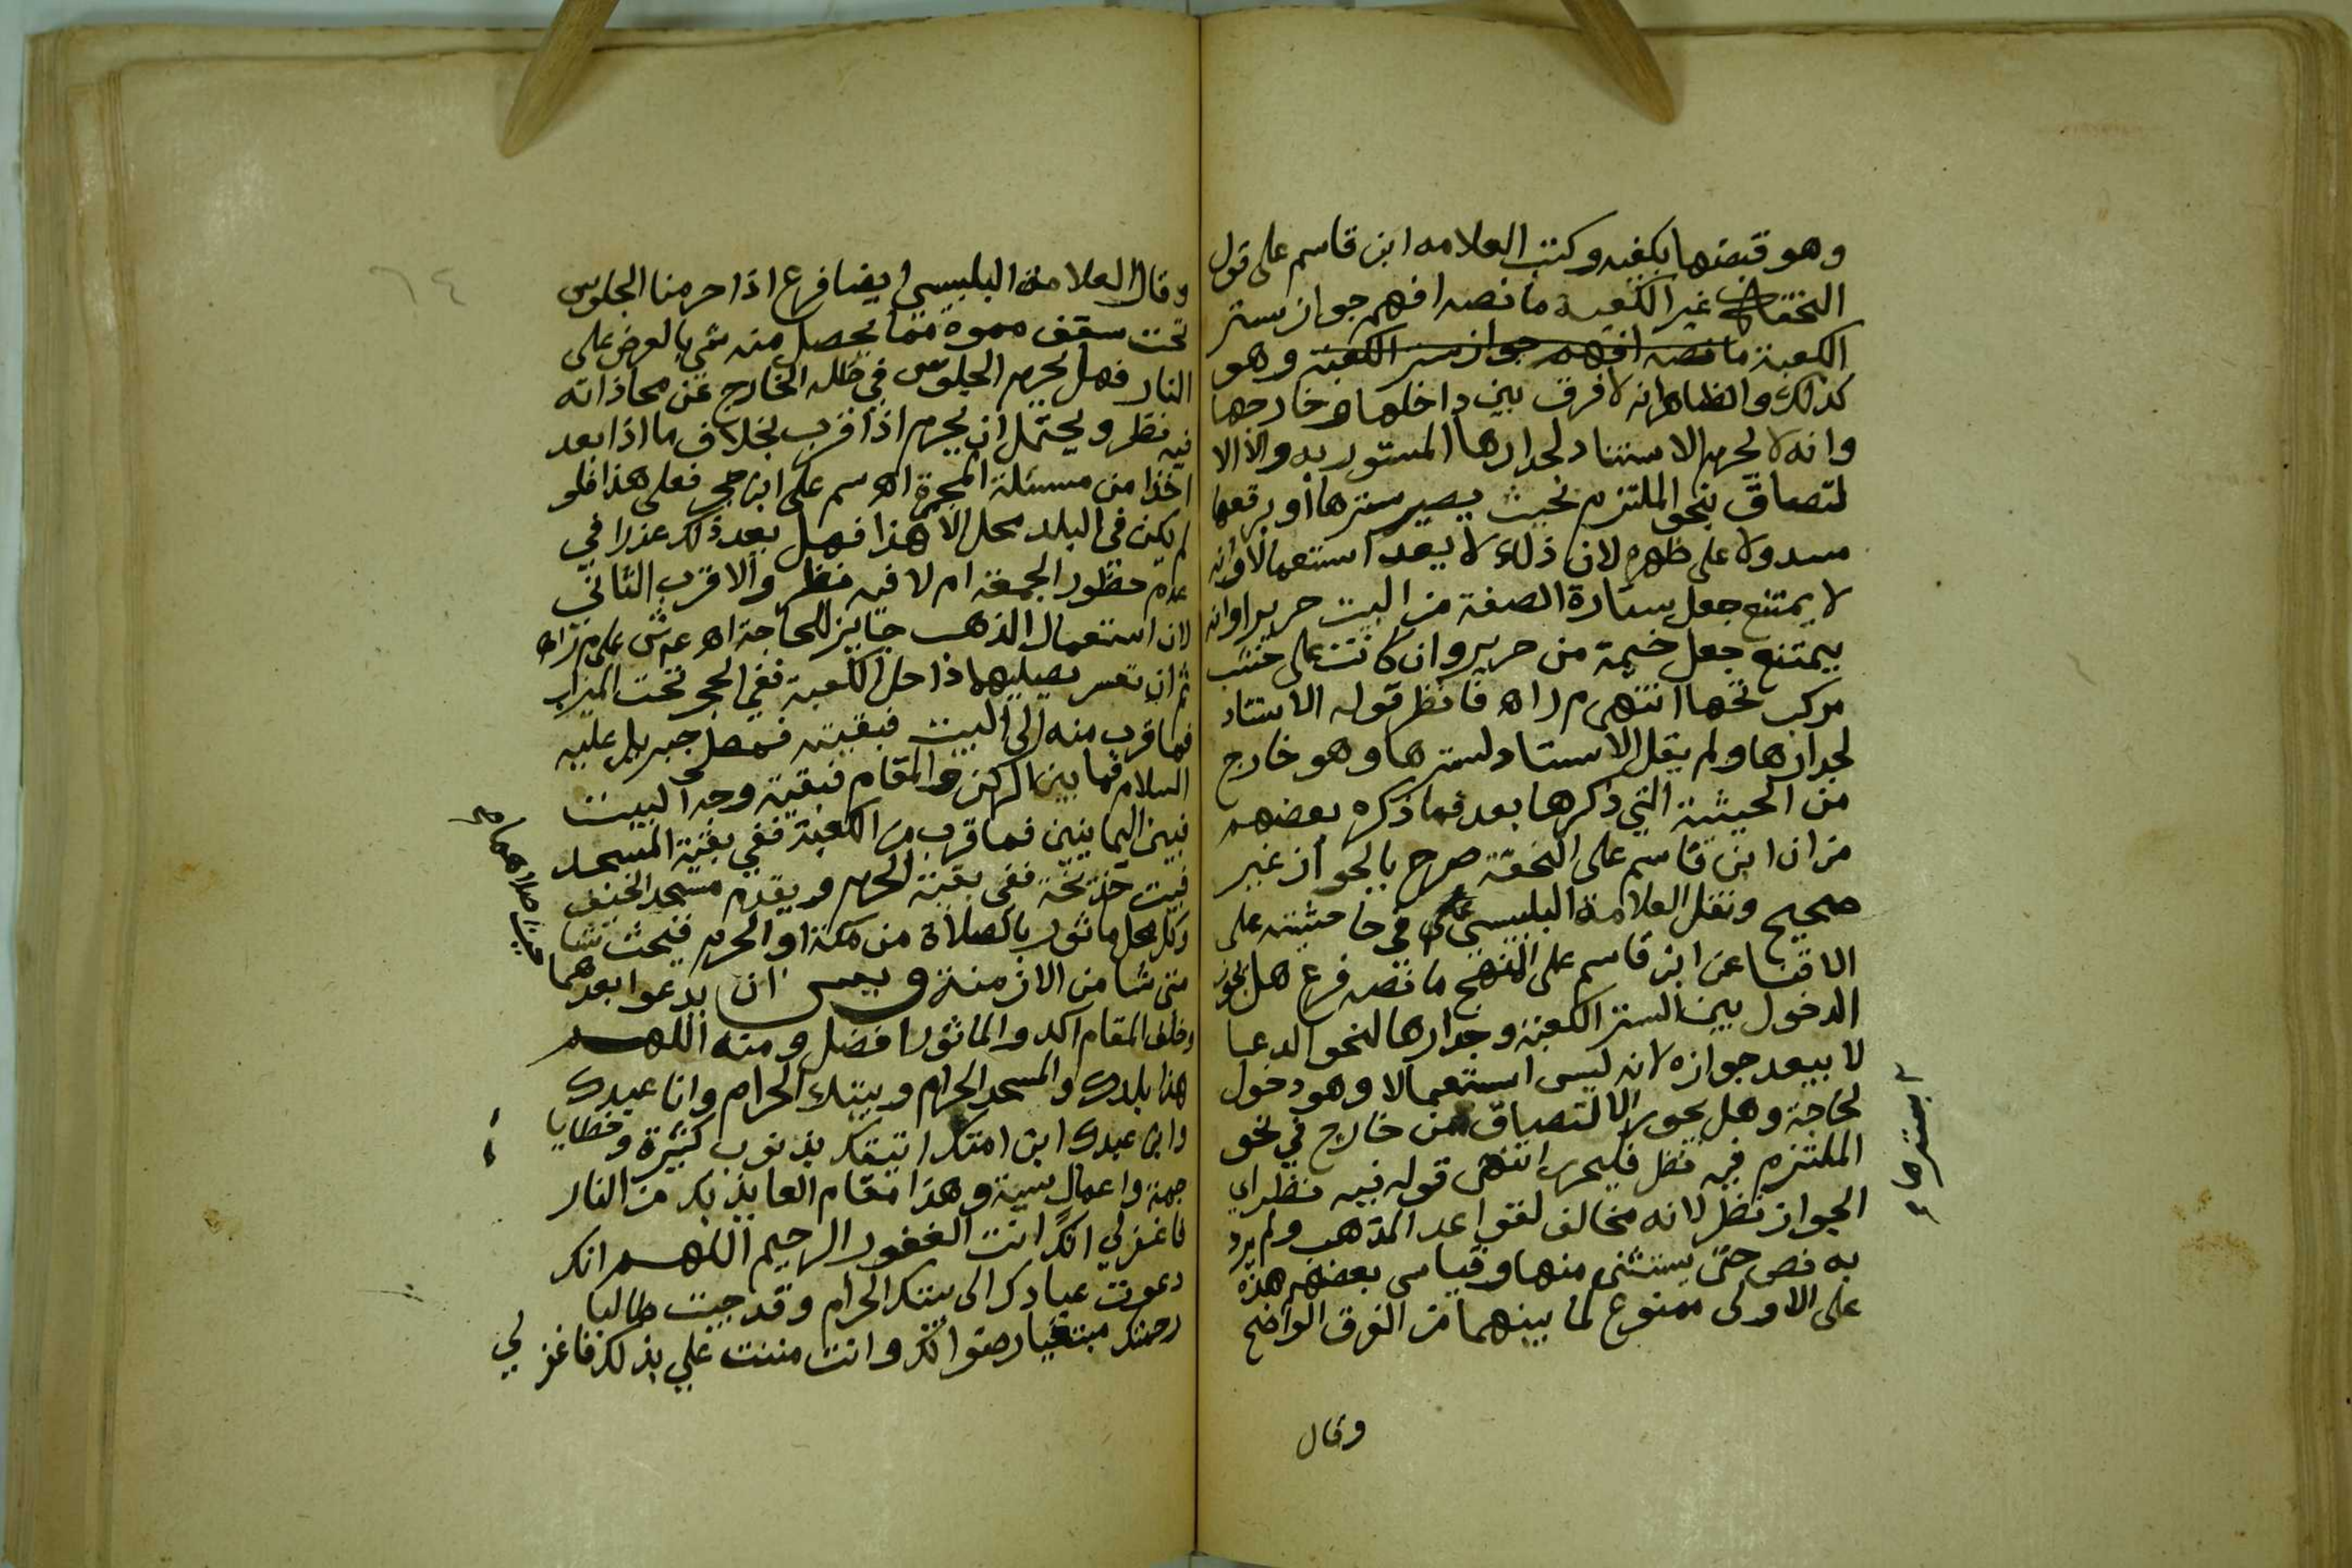 وهو قبضها بكفيه وكتب العلامه ابن قاسم على قول
غير الكعبة ما نصه افهم جواز ستر
الكعبة ما نصه افهم جواز ستر الكعبة وهو
كذلك والظاهر انه لا فرق بين داخلها وخارجها
وانه لا يحرم الاستناد لجدارها المستور به والا الا
لتصاق بنحو الملتزم بحيث يصير سترها أو برقعها
مسدولا على ظهره لان ذلك لا يعد استعمالا وانه
لا يمتنع جعل ستارة الصفة من البيت حريرا وانه
يمتنع جعل خيمة من حرير وان كانت على خشب
مركب تحتها انتهى م ر اه فانظر قوله الاستناد
لجدارها ولم يقل الاستناد لسترها وهو خارج
من الحيثية التي ذكرها بعد فما ذكره بعضهم
من ان ابن قاسم على التحفة صرح بالجواز غير
صحيح ونقل العلامة البلبيسي في حاشيته على
الاقناع عن ابن قاسم على المنهج ما نصه فرع هل يجوز
الدخول بين الستر الكعبة وجدارها لنحو الدعا
لا يبعد جوازه لانه ليس استعمالا وهو دخول
لحاجة وهل يجوز الالتصاق من خارج في نحو
الملتزم فيه نظر فليحرر انتهى قوله فيه نظر اي
الجواز نظر لانه مخالف لقواعد المذهب ولم يرد
به نص حتى يستثنى منها وقياس بعضهم هذه
على الاولى ممنوع لما بينهما من الفرق الواضح
وقال
وقال العلامة البلبيسي ايضا فرع اذا حرمنا الجلوس
تحت سقف مموه مما يحصل منه شي بالعرض على
النار فهل يحرم الجلوس في ظله الخارج عن محاذاته
فيه نظر ويحتمل ان يحرم اذا قرب بخلاف ما اذا بعد
اخذا من مسئلة المجمرة اه سم على ابن حجر فعلى هذا فلو
لم يكن في البلد محل الا هذا فهل يعد ذلك عذرا في
عدم حظور الجمعة ام لا فيه نظر والاقرب الثاني
لان استعمال الذهب جايز للحاجة اه ع ش على م ر اه
ثم ان تعسر يصليهما داخل الكعبة ففي الحجر تحت الميزاب
فما قرب منه الى البيت فبقيته فمصلى جبريل عليه
السلام فما بين الركن والمقام فبقية وجه البيت
فبين اليمانيين فما قرب من الكعبة ففي بقية المسجد
فبيت خديجة ففي بقية الحرم ويقدم مسجد الخيف
وكل محل ماثور بالصلاة من مكة او الحرم فيحث شا
متى شا من الازمنة ويسن ان يدعوا بعدهما
وخلف المقام اكد والماثور افضل ومنه اللهم
هذا بلدك والمسجد الحرام وبيتك الحرام وانا عبدك
وابن عبدك ابن امتك اتيتك بذنوب كثيرة وخطايا
جمة واعمال سية وهذا مقام العايذ بك من النار
فاغفر لي انك انت الغفور الرحيم اللهم انك
دعوت عبادك الى بيتك الحرام وقد جيت طالبا
رحمتك مبتغيا رضوانك وانت مننت علي بذلك فاغفر لي
٦٤